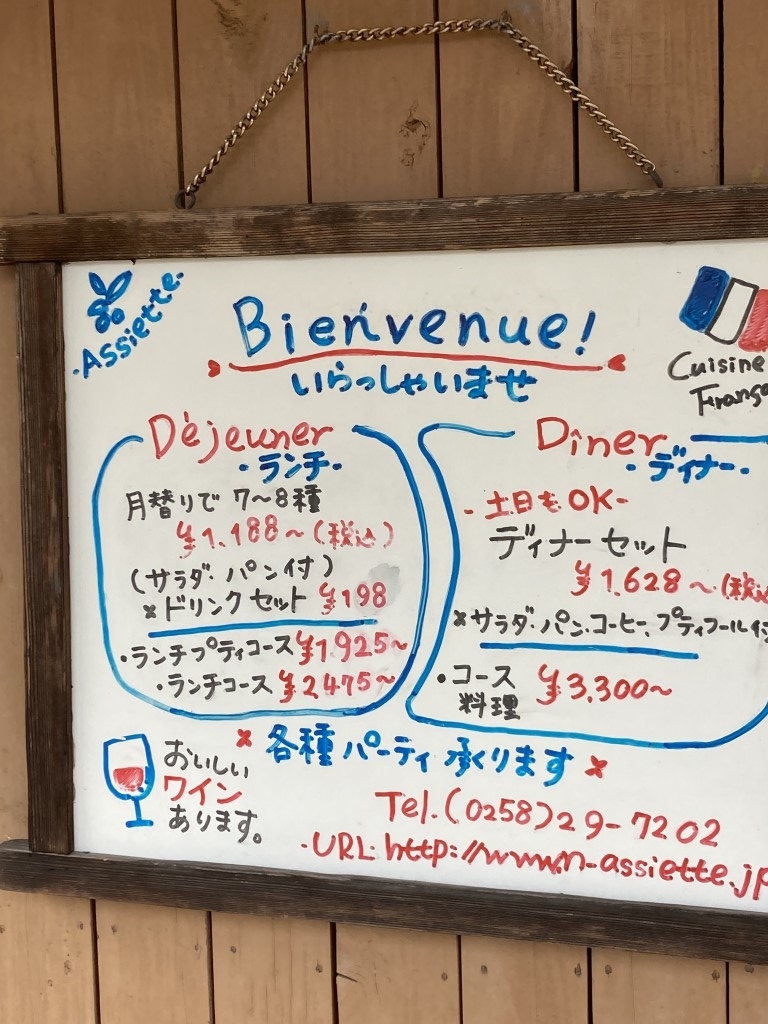 ・Assiette・
Bienvenue!
いらっしゃいませ
Cuisine
França
Déjeuner
・ランチ・
月替りで 7〜8種
¥1,188〜(税込)
(サラダ・パン付)
×ドリンクセット ¥198
・ランチプティコース¥1,925〜
・ランチコース ¥2,475〜
Dîner
・ディナー・
- 土日もOK-
ディナーセット
¥1,628〜(税込
×サラダ・パン・コーヒー、プティフール付
・コース
料理
¥3,300〜
×各種パーティ承ります×
おいしい
ワイン
あります。
Tel.(0258)29-7202
・URL http://www.n-assiette.jp